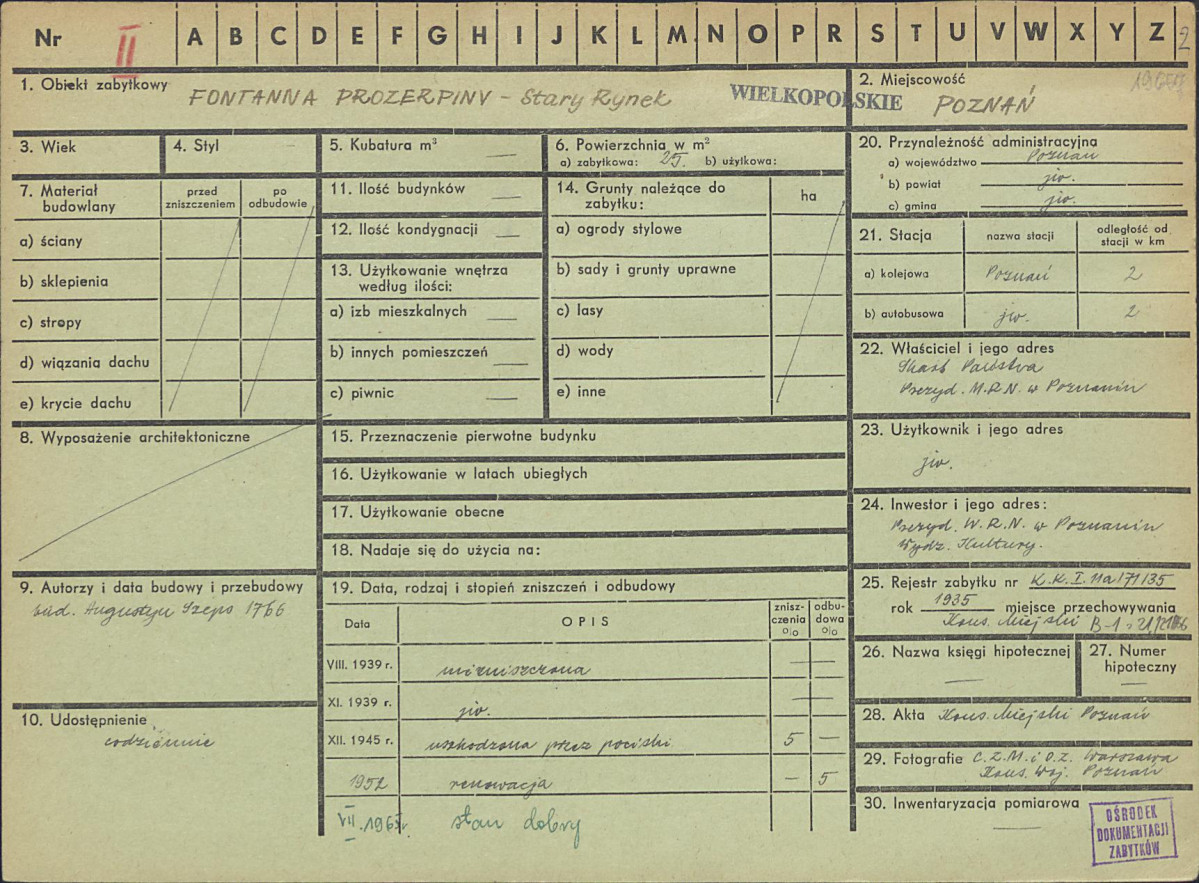 Nr II A B C D E F G H I J K L M N O P R S T U V W X Y Z 2
1. Obiekt zabytkowy FONTANNA PROZERPINY – Stary Rynek WIELKOPOLSKIE
2. Miejscowość POZNAŃ
3. Wiek
4. Styl
5. Kubatura m³ —
6. Powierzchnia w m²
a) zabytkowa: 25. b) użytkowa:
7. Materiał budowlany
przed zniszczeniem
po odbudowie
a) ściany
b) sklepienia
c) stropy
d) wiązania dachu
e) krycie dachu
8. Wyposażenie architektoniczne
9. Autorzy i data budowy i przebudowy
bud. Augustyn Szeps 1766
10. Udostępnienie
codziennie
11. Ilość budynków —
12. Ilość kondygnacji —
13. Użytkowanie wnętrza
według ilości:
a) izb mieszkalnych —
b) innych pomieszczeń —
c) piwnic —
14. Grunty należące do
zabytku:
ha
a) ogrody stylowe
b) sady i grunty uprawne
c) lasy
d) wody
e) inne
15. Przeznaczenie pierwotne budynku
16. Użytkowanie w latach ubiegłych
17. Użytkowanie obecne
18. Nadaje się do użycia na:
19. Data, rodzaj i stopień zniszczeń i odbudowy
Data OPIS znisz-czenia o|o odbu-dowa o|o
VIII. 1939 r. niezniszczona —
XI. 1939 r. jw. —
XII. 1945 r. uszkodzona przez pociski 5 —
1952 renowacja — 5
VII. 1965r. stan dobry
20. Przynależność administracyjna
a) województwo Poznań
b) powiat jw.
c) gmina jw.
21. Stacja
nazwa stacji
odległość od stacji w km
a) kolejowa Poznań 2
b) autobusowa jw. 2
22. Właściciel i jego adres
Skarb Państwa
Prezyd. M.R.N. w Poznaniu
23. Użytkownik i jego adres
jw.
24. Inwestor i jego adres:
Prezyd. W.R.N. w Poznaniu
Wydz. Kultury.
25. Rejestr zabytku nr K.K.I.11a/171/35
rok 1935 miejsce przechowywania
Kons. Miejski
26. Nazwa księgi hipotecznej
—
27. Numer
hipoteczny
—
28. Akta Kons. Miejski Poznań
29. Fotografie C.Z.M. i O.Z. Warszawa
Kons. Woj. Poznań
30. Inwentaryzacja pomiarowa
—
OŚRODEK
DOKUMENTACJI
ZABYTKÓW